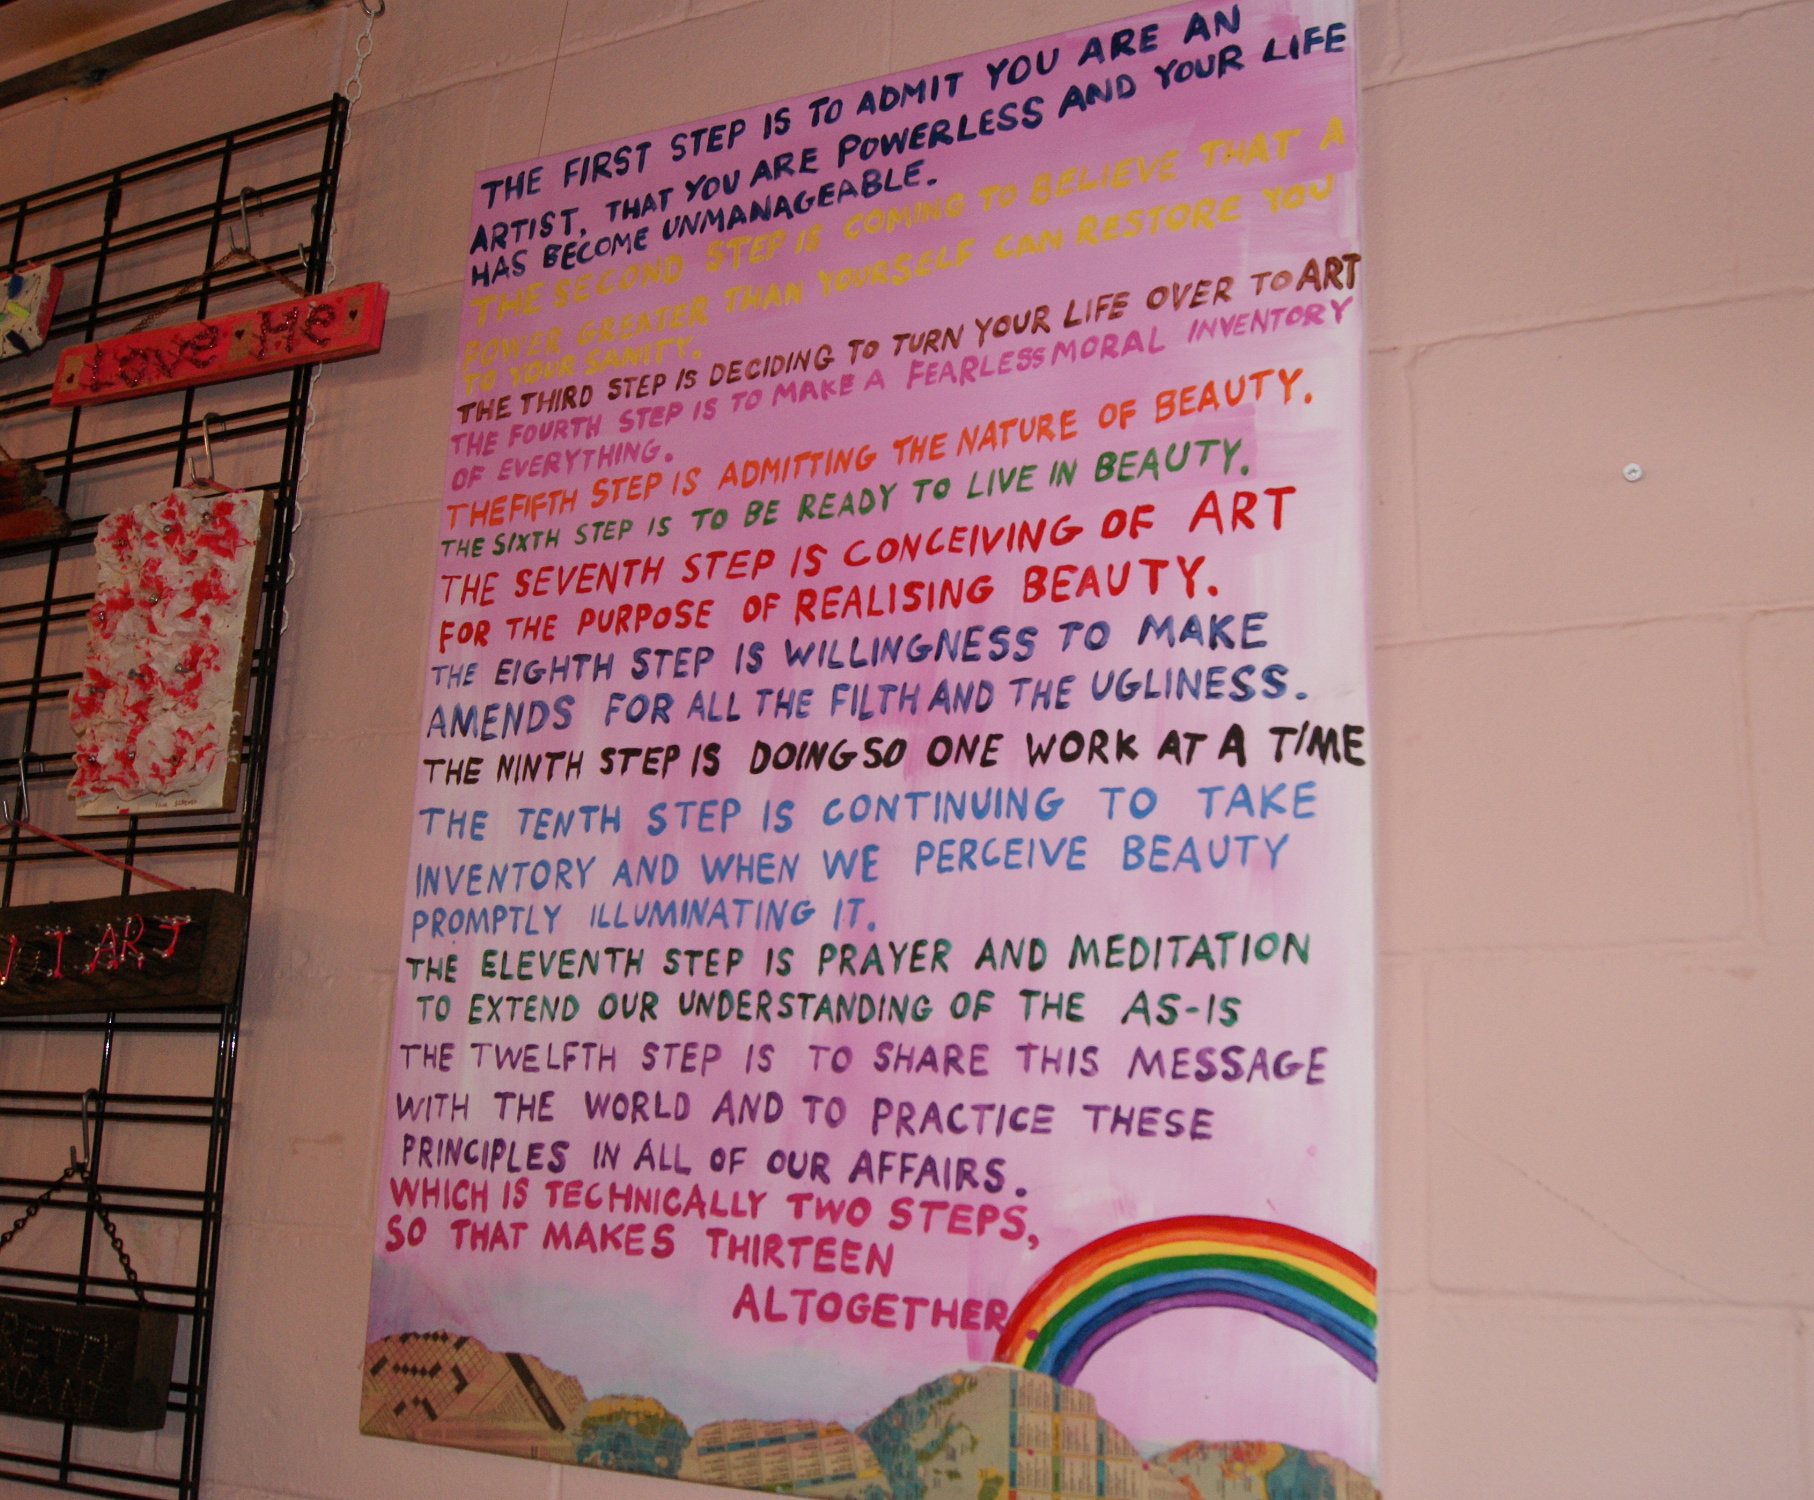 THE FIRST STEP IS TO ADMIT YOU ARE AN
ARTIST, THAT YOU ARE POWERLESS AND YOUR LIFE
HAS BECOME UNMANAGEABLE.
THE SECOND STEP IS COMING TO BELIEVE THAT A
POWER GREATER THAN YOURSELF CAN RESTORE YOU
TO YOUR SANITY.
THE THIRD STEP IS DECIDING TO TURN YOUR LIFE OVER TO ART
THE FOURTH STEP IS TO MAKE A FEARLESS MORAL INVENTORY
OF EVERYTHING.
THE FIFTH STEP IS ADMITTING THE NATURE OF BEAUTY.
THE SIXTH STEP IS TO BE READY TO LIVE IN BEAUTY.
THE SEVENTH STEP IS CONCEIVING OF ART
FOR THE PURPOSE OF REALISING BEAUTY.
THE EIGHTH STEP IS WILLINGNESS TO MAKE
AMENDS FOR ALL THE FILTH AND THE UGLINESS.
THE NINTH STEP IS DOING SO ONE WORK AT A TIME
THE TENTH STEP IS CONTINUING TO TAKE
INVENTORY AND WHEN WE PERCEIVE BEAUTY
PROMPTLY ILLUMINATING IT.
THE ELEVENTH STEP IS PRAYER AND MEDITATION
TO EXTEND OUR UNDERSTANDING OF THE AS-IS
THE TWELFTH STEP IS TO SHARE THIS MESSAGE
WITH THE WORLD AND TO PRACTICE THESE
PRINCIPLES IN ALL OF OUR AFFAIRS.
WHICH IS TECHNICALLY TWO STEPS,
SO THAT MAKES THIRTEEN
ALTOGETHER.
LOVE ME
I ART